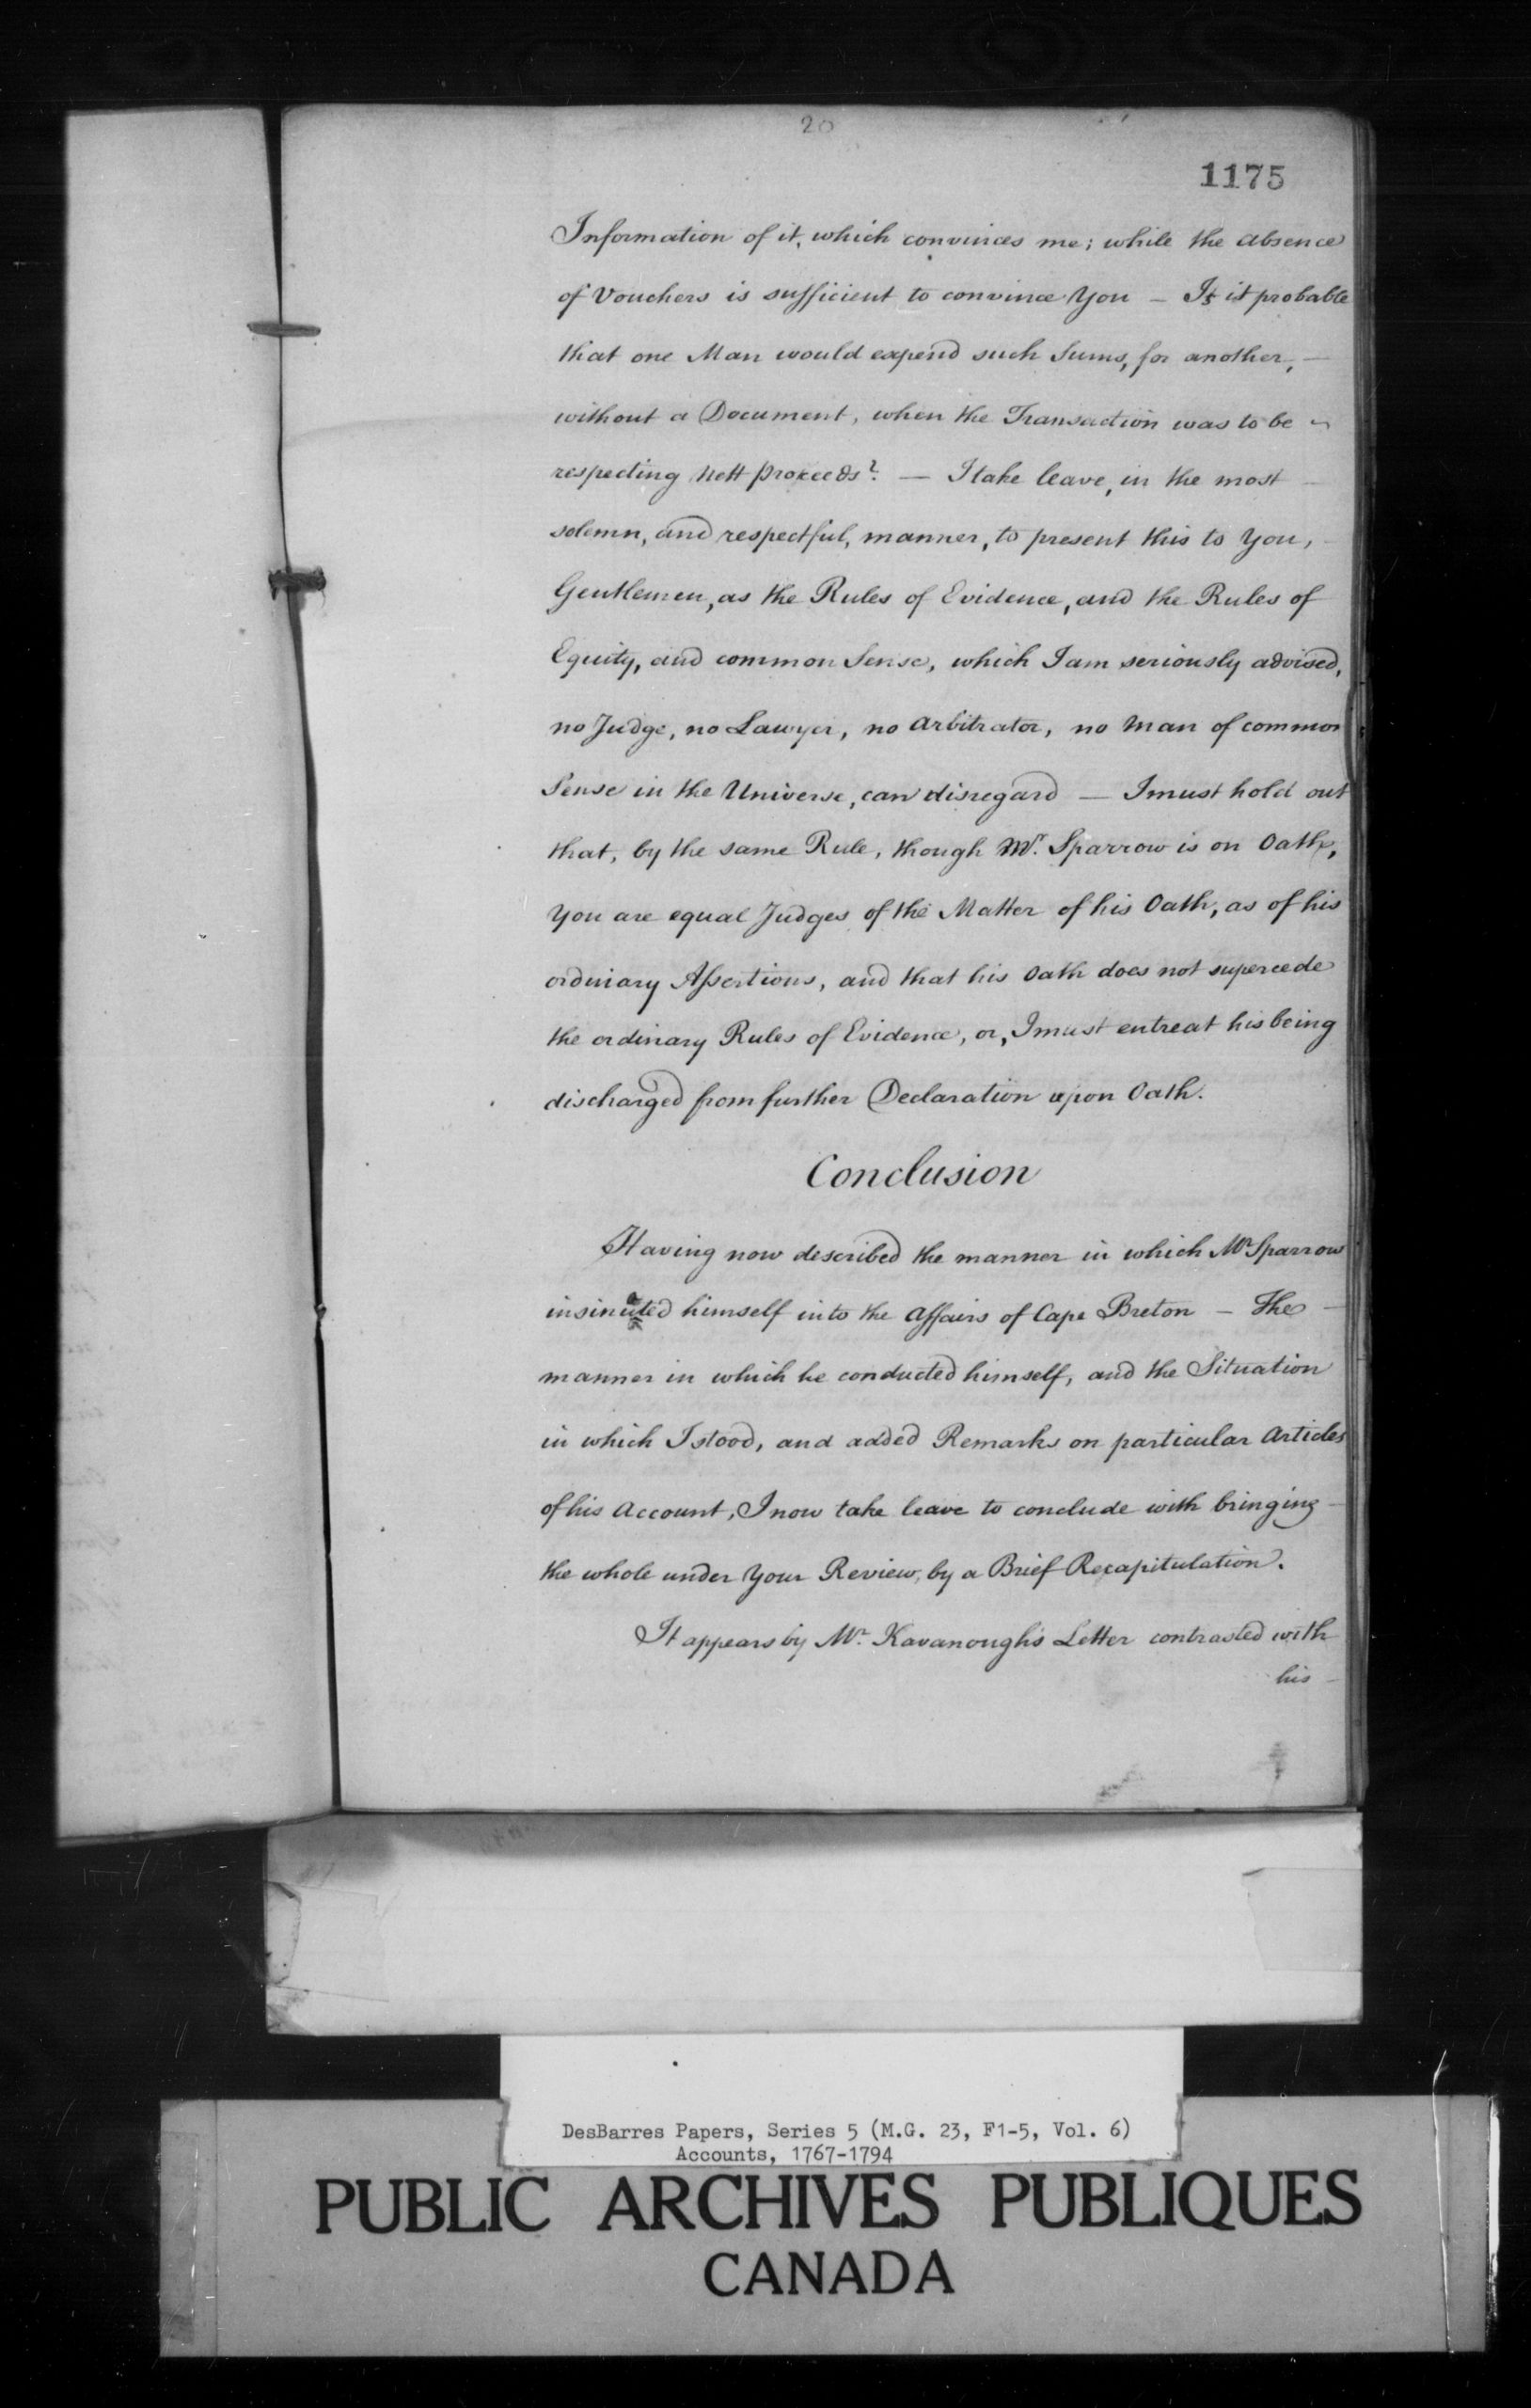 20
1175
Information of it, which convinces me; while the absence
of Vouchers is sufficient to convince You — Is it probable
that one Man would expend such Sums, for another, —
without a Document, when the Transaction was to be
respecting Nett Proceeds? — I take leave, in the most
solemn, and respectful, manner, to present this to You,
Gentlemen, as the Rules of Evidence, and the Rules of
Equity, and common Sense, which I am seriously advised,
no Judge, no Lawyer, no Arbitrator, no Man of common
Sense in the Universe, can disregard — I must hold out
that, by the same Rule, though Mr. Sparrow is on Oath,
You are equal Judges of the Matter of his Oath, as of his
ordinary Assertions, and that his Oath does not supercede
the ordinary Rules of Evidence, or, I must entreat his being
discharged from further Declaration upon Oath.
Conclusion
Having now described the manner in which Mr. Sparrow
insinuated himself into the Affairs of Cape Breton — The —
manner in which he conducted himself, and the Situation
in which I stood, and added Remarks on particular Articles
of his Account, I now take leave to conclude with bringing —
the whole under Your Review, by a Brief Recapitulation.
It appears by Mr. Kavanough's Letter contrasted with
his —
DesBarres Papers, Series 5 (M.G. 23, F1-5, Vol. 6)
Accounts, 1767-1794
PUBLIC ARCHIVES PUBLIQUES
CANADA